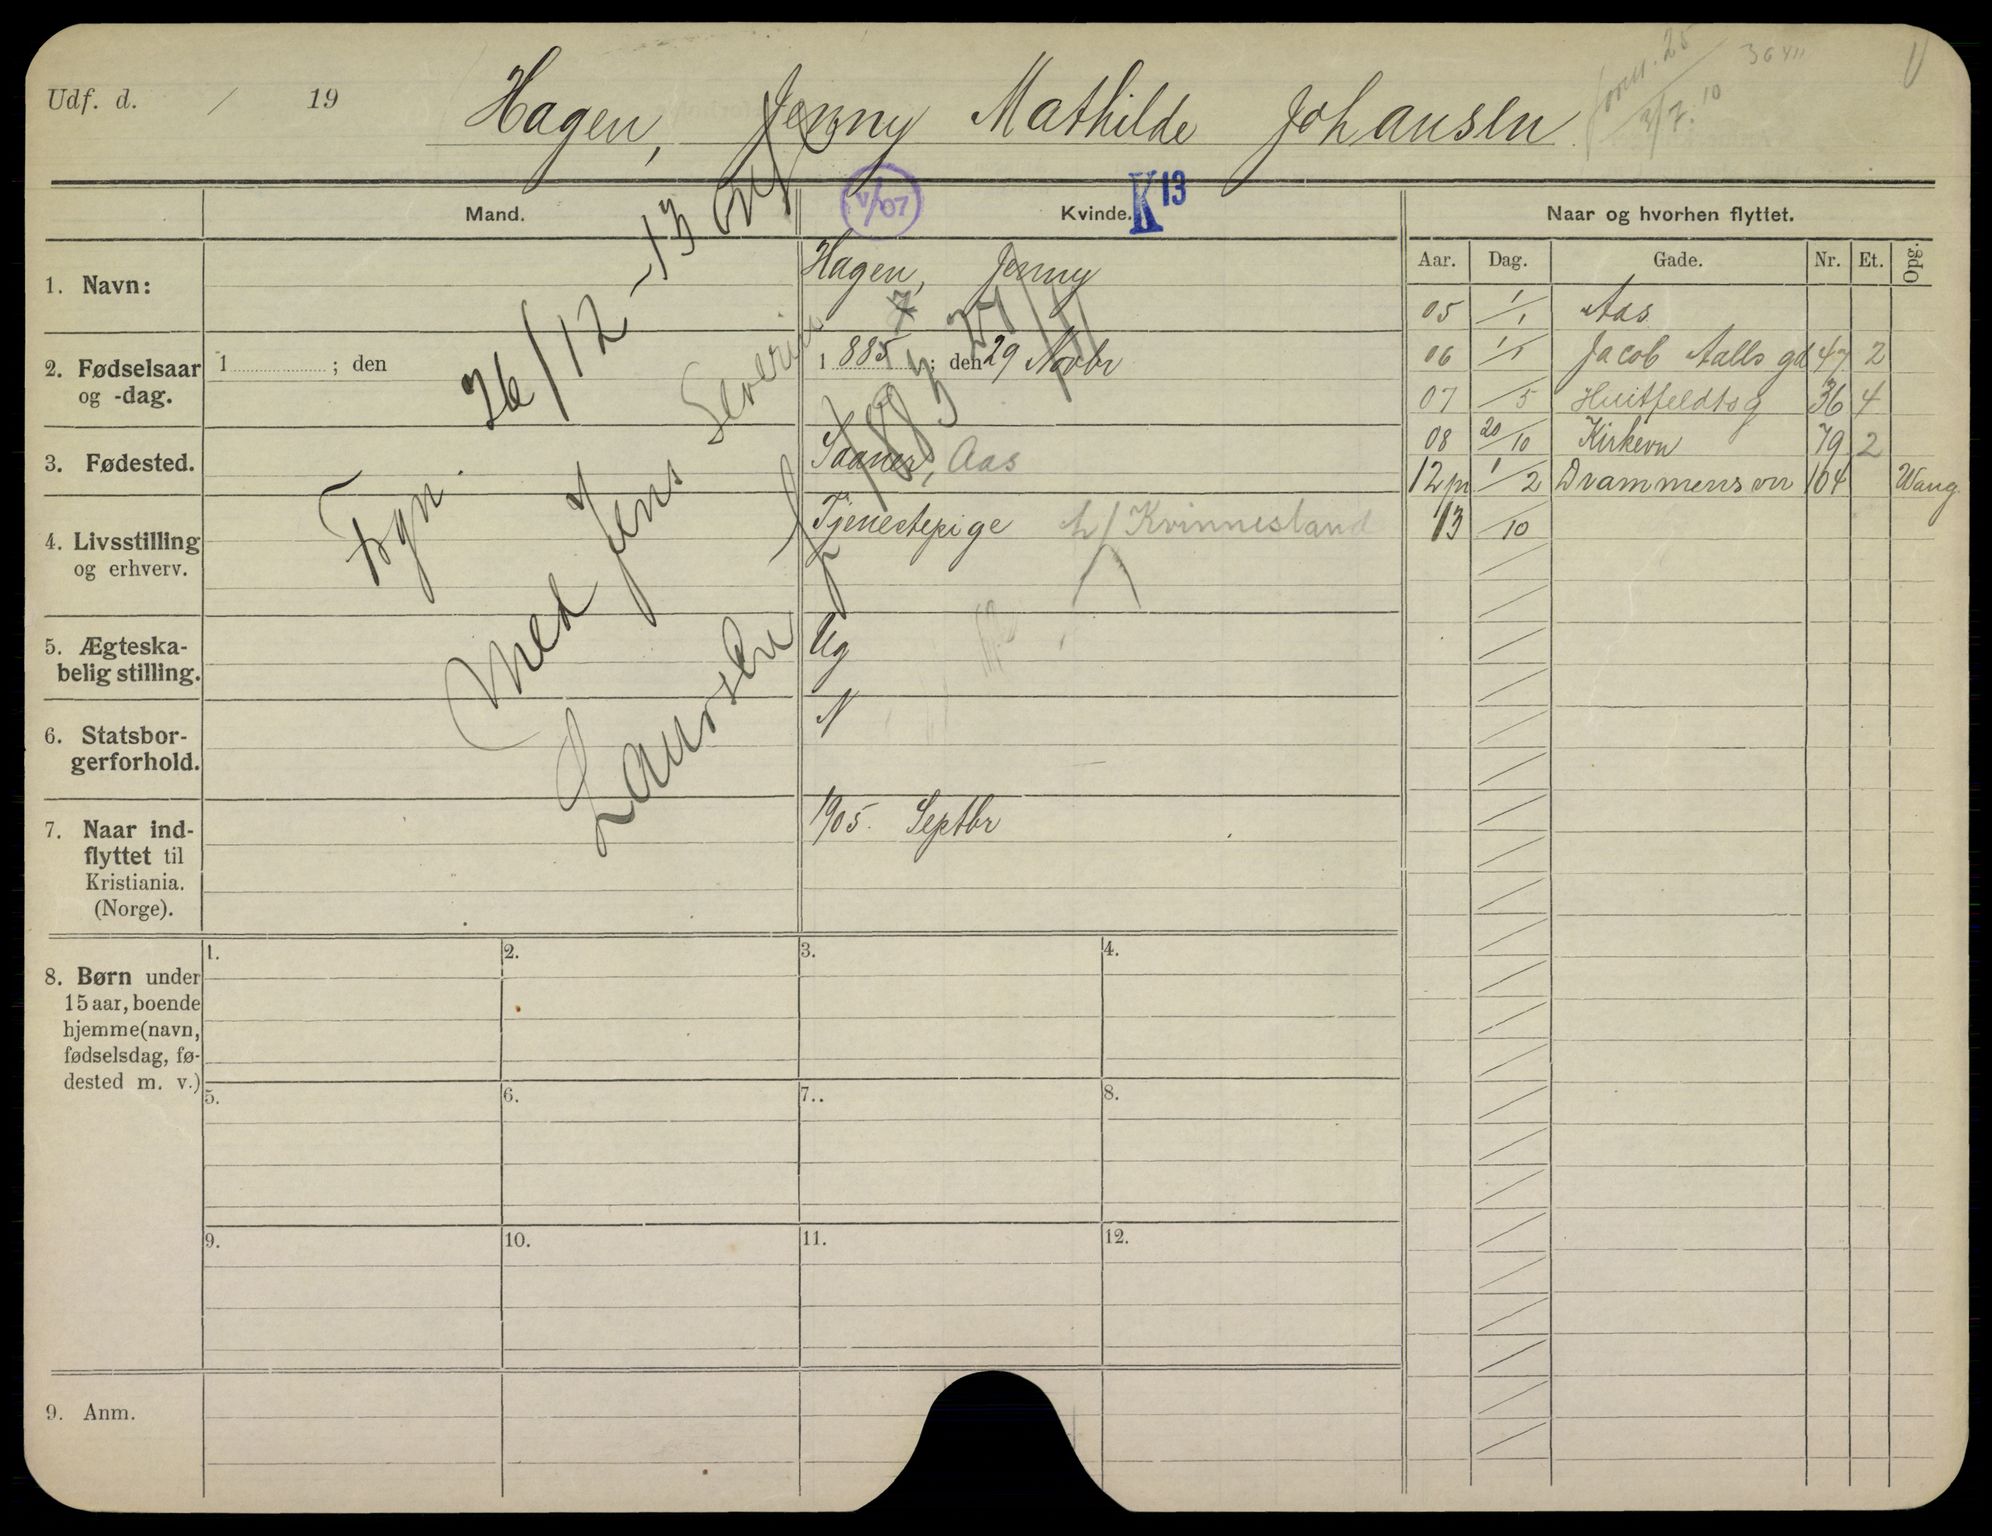 Udf. d. / 19
Hagen, Jenny Mathilde Johansen
36411
V/07
K 13
Mand.
Kvinde.
Naar og hvorhen flyttet.
Aar. Dag. Gade. Nr. Et. Opg.
1. Navn:
Hagen, Jenny
2. Fødselsaar
og -dag.
1 ; den
1 885 7 ; den 29 Novbr
1883 27/11
3. Fødested.
Saaner, Aas
4. Livsstilling
og erhverv.
Tjenestepige h/ Kvinnestand
5. Ægteska-
belig stilling.
Ug
6. Statsbor-
gerforhold.
N
7. Naar ind-
flyttet til
Kristiania.
(Norge).
1905. Septbr
Fgn. 26/12 -13
med Jens Severin
Laursen
05 1/1 Aas
06 1/1 Jacob Aalls gd 47 2
07 /5 Huitfeldtsg 36 4
08 20/10 Kirkevn 79 2
12 1/2 Drammensvn 104 Wang
13 /10
8. Børn under
15 aar, boende
hjemme (navn,
fødselsdag, fø-
dested m. v.)
1. 2. 3. 4.
5. 6. 7.. 8.
9. 10. 11. 12.
9. Anm.